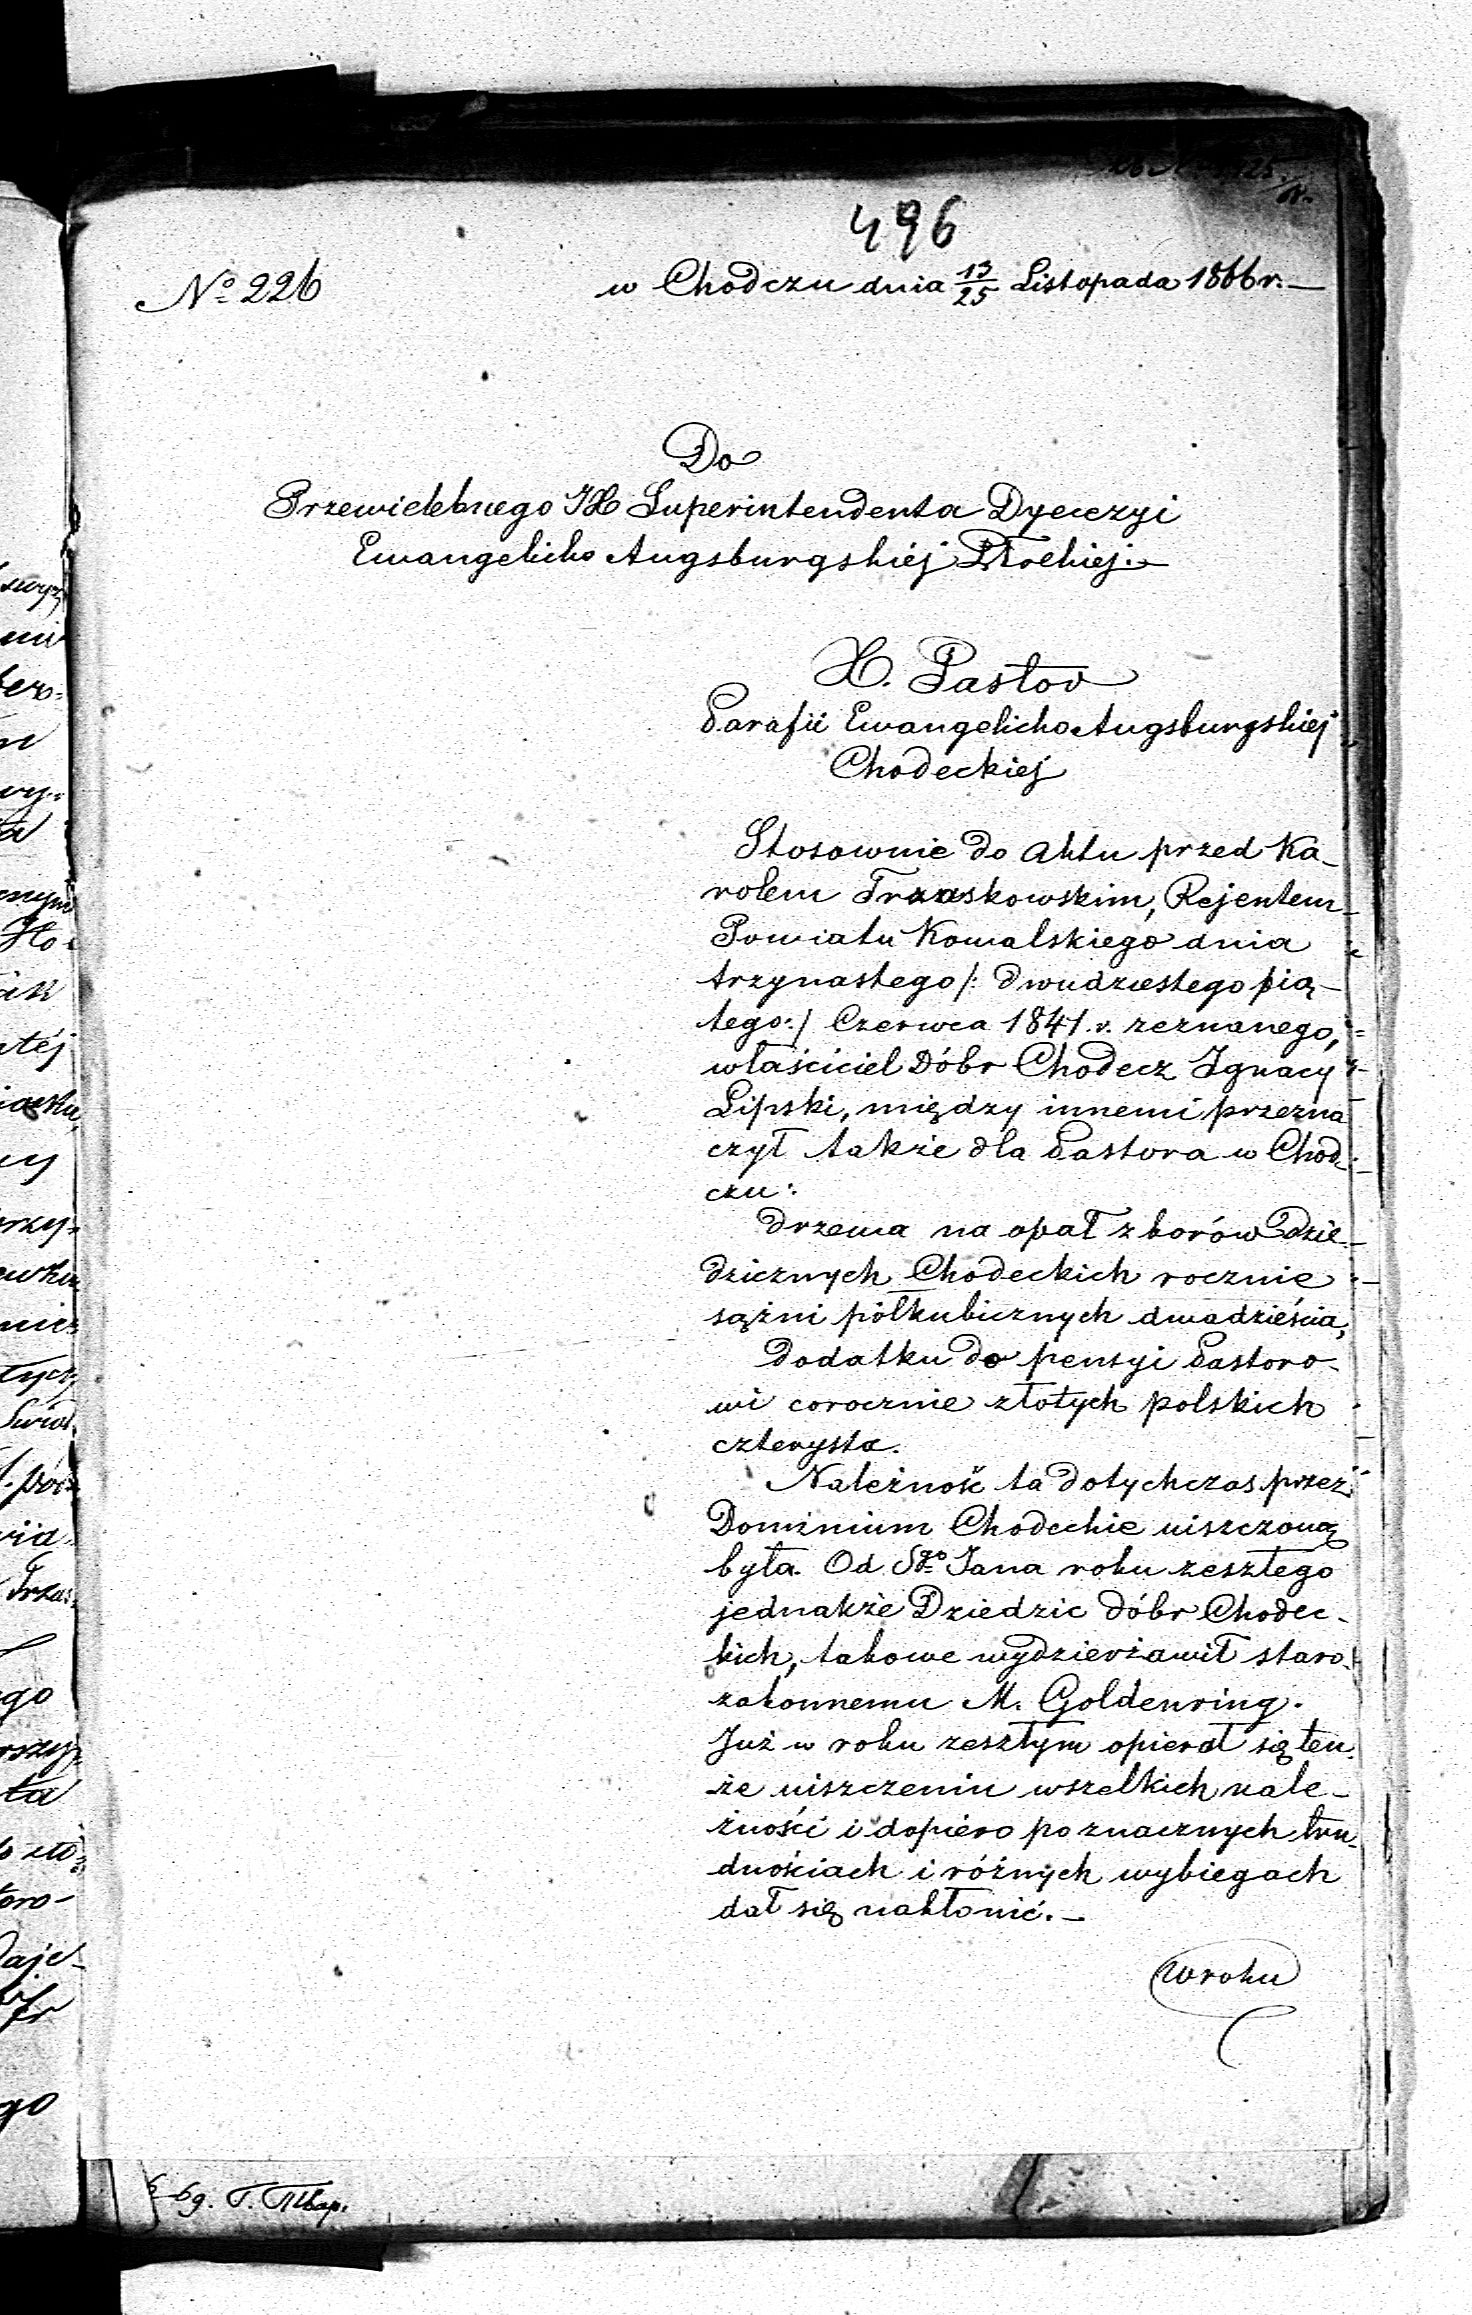 496
№ 226
w Chodczu dnia 13/25 Listopada 1866 r.
Do
Przewielebnego JX Superintendenta Dyecezyi
Ewangelicko Augsburgskiéj Płockiéj.
X. Pastor
Parafii Ewangelicko Augsburgskiéj
Chodeckiéj
Stosownie do Aktu przed Ka-
rolem Trzaskowskim, Rejentem
Powiatu Kowalskiego dnia
trzynastego /: dwudziestego pią-
tego :/ Czerwca 1841 r. zeznanego,
właściciel Dóbr Chodecz Ignacy
Lipski, między innemi przezna
czył także dla Pastora w Chod-
czu:
Drzewa na opał z borów Dzie-
dzicznych Chodeckich rocznie
sążni półkubicznych dwadzieścia,
Dodatku do pensyi Pastoro-
wi corocznie złotych polskich
czterysta.
Należność ta dotychczas przez
Dominium Chodeckie uiszczoną
była. Od Sgo Jana roku zeszłego
jednakże Dziedzic dóbr Chodec-
kich, takowe wydzierżawił staro-
zakonnemu M. Goldenring.
Już w roku zeszłym opierał się ten-
że uiszczeniu wszelkich nale-
żności i dopiéro po znacznych tru-
dnościach i różnych wybiegach
dał się nakłonić.
W roku